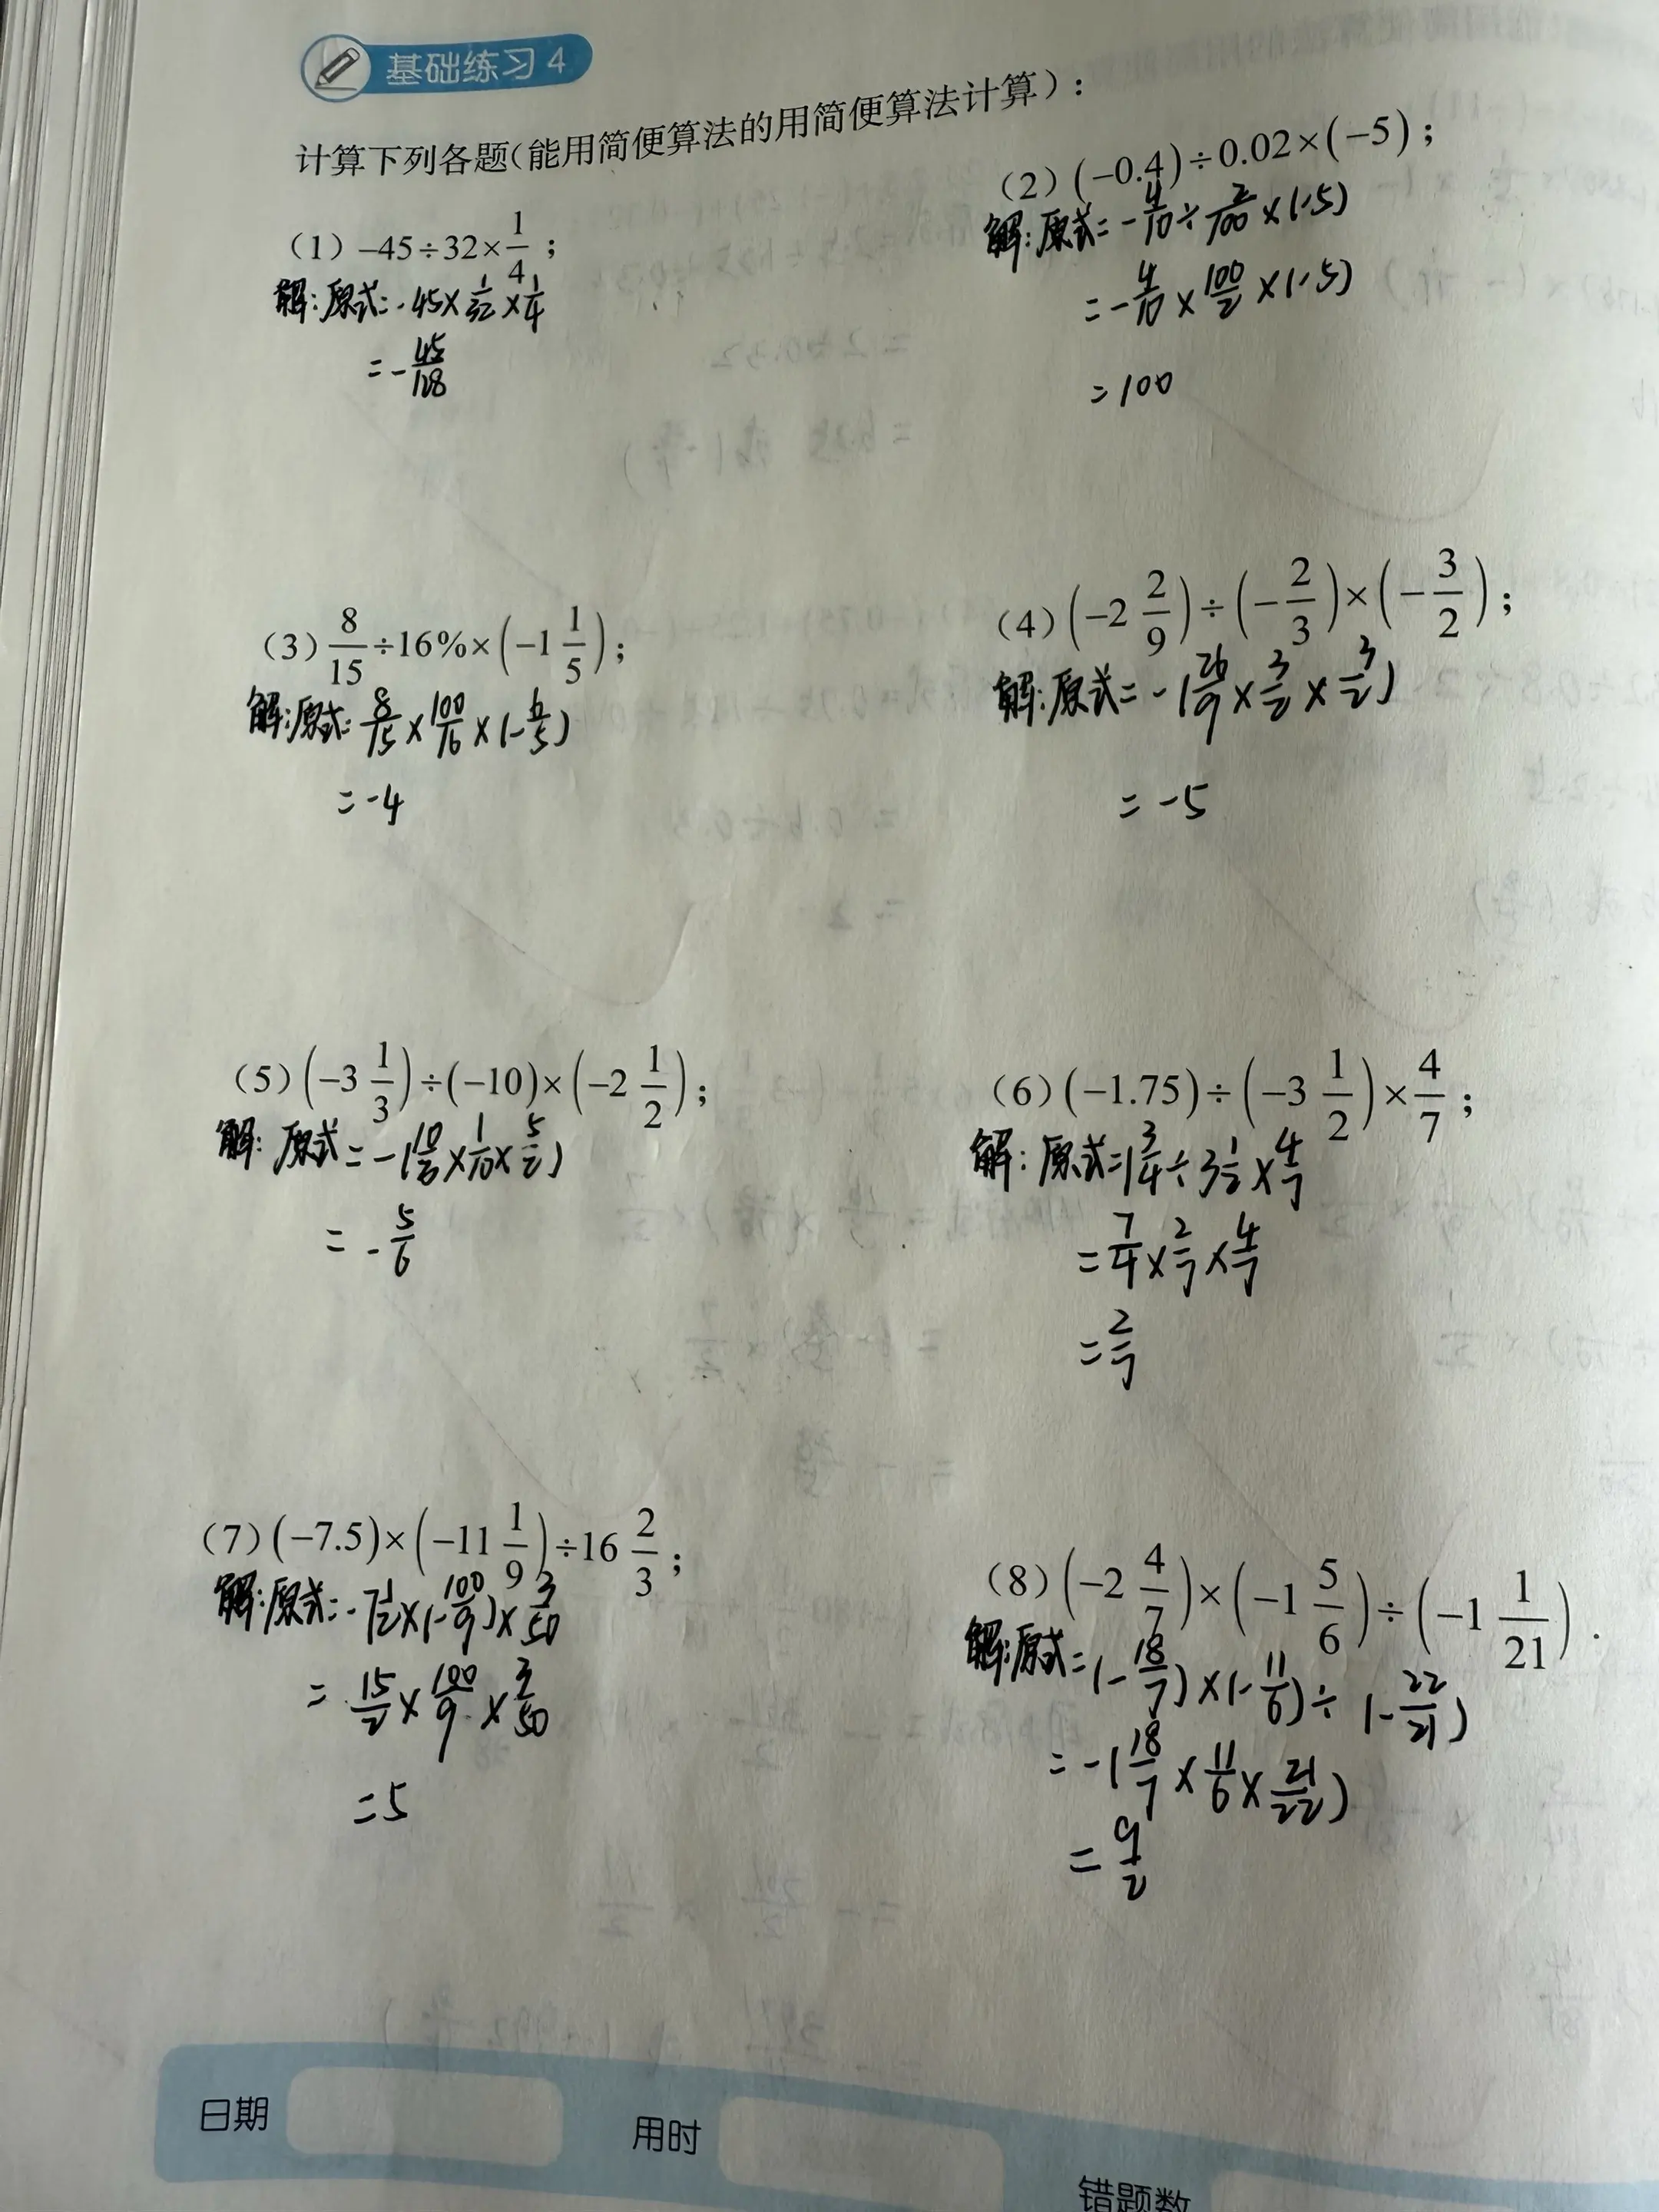 基础练习 4
计算下列各题(能用简便算法的用简便算法计算):
(1) -45÷32×1/4;
解:原式=-45×1/32×1/4
=-45/128
(2) (-0.4)÷0.02×(-5);
解:原式=-4/10÷2/100×(-5)
=-4/10×100/2×(-5)
=100
(3) 8/15÷16%×(-1 1/5);
解:原式=8/15×100/16×(-6/5)
=-4
(4) (-2 2/9)÷(-2/3)×(-3/2);
解:原式=-(20/9×3/2×3/2)
=-5
(5) (-3 1/3)÷(-10)×(-2 1/2);
解:原式=-(10/3×1/10×5/2)
=-5/6
(6) (-1.75)÷(-3 1/2)×4/7;
解:原式=1 3/4÷3 1/2×4/7
=7/4×2/7×4/7
=2/7
(7) (-7.5)×(-11 1/9)÷16 2/3;
解:原式=-7 1/2×(-100/9)×3/50
=15/2×100/9×3/50
=5
(8) (-2 4/7)×(-1 5/6)÷(-1 1/21).
解:原式=(-18/7)×(-11/6)÷(-22/21)
=-(18/7×11/6×21/22)
=9/2
日期
用时
错题数